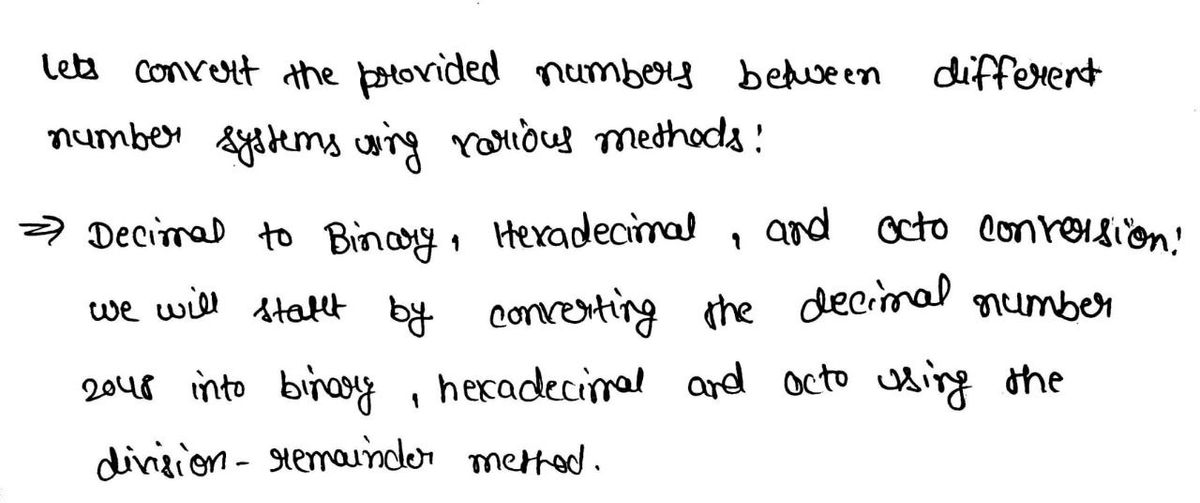 Lets convert the provided numbers between different
number systems using various methods:
⇒ Decimal to Binary, Hexadecimal, and octo conversion:
we will start by converting the decimal number
2048 into binary, hexadecimal and octo using the
division-remainder method.